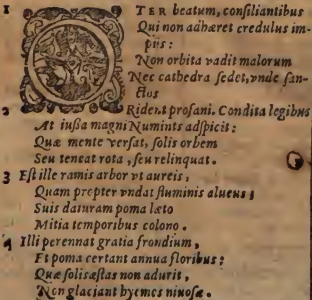 1 O TER beatum, consiliantibus
Qui non adhæret credulus im-
piis:
Non orbita vadit malorum
Nec cathedra sedet, vnde san-
ctus
2 Rident profani. Condita legibus
At iussa magni Numinis adspicit:
Quæ mente versat, solis orbem
Seu teneat rota, seu relinquat.
3 Est ille ramis arbor vt aureis,
Quam propter vndat fluminis alueus;
Suis daturam poma læto
Mitia temporibus colono.
4 Illi perennat gratia frondium,
Et poma certant annua floribus;
Quæ solis æstas non adurit,
Non glaciant hyemes niuosæ.